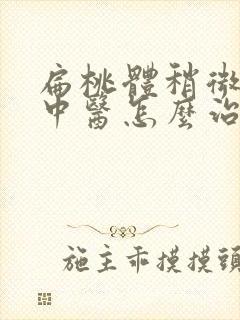 扁桃體稍微
中醫怎麼治
施主乖摸摸頭